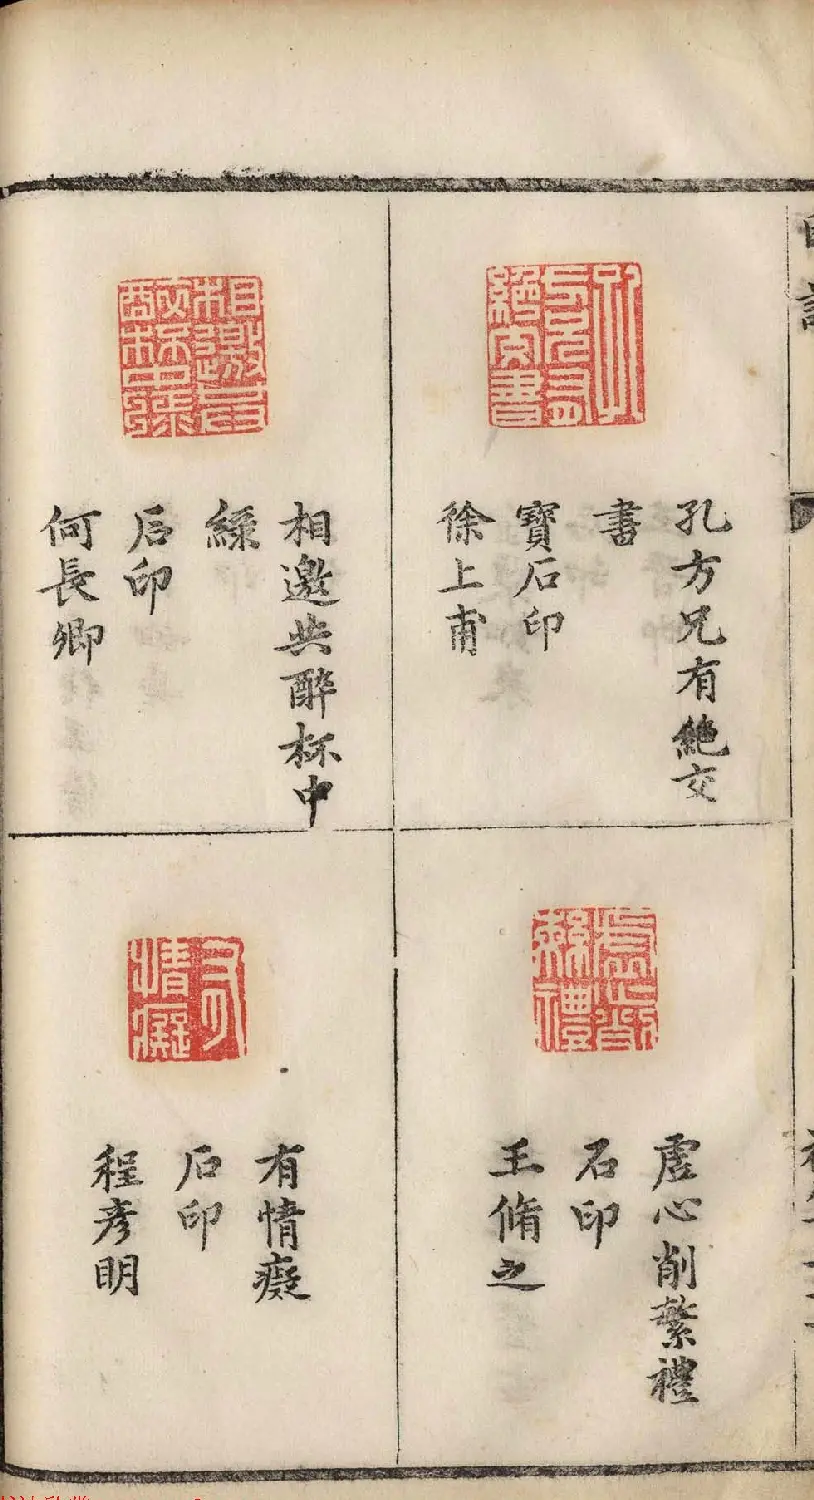 孔方兄有絶交
書
寶石印
徐上甫
相邀共醉杯中
綠
石印
何長卿
虛心削繁禮
石印
王脩之
有情癡
石印
程彥明